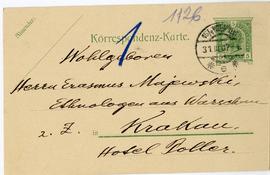 1126
Korrespondenz-Karte.
1
Wohlgeboren
Herrn Erasmus Majewski
Ethnologen aus Warschau
z. Z. in Krakau.
Hotel Poller.